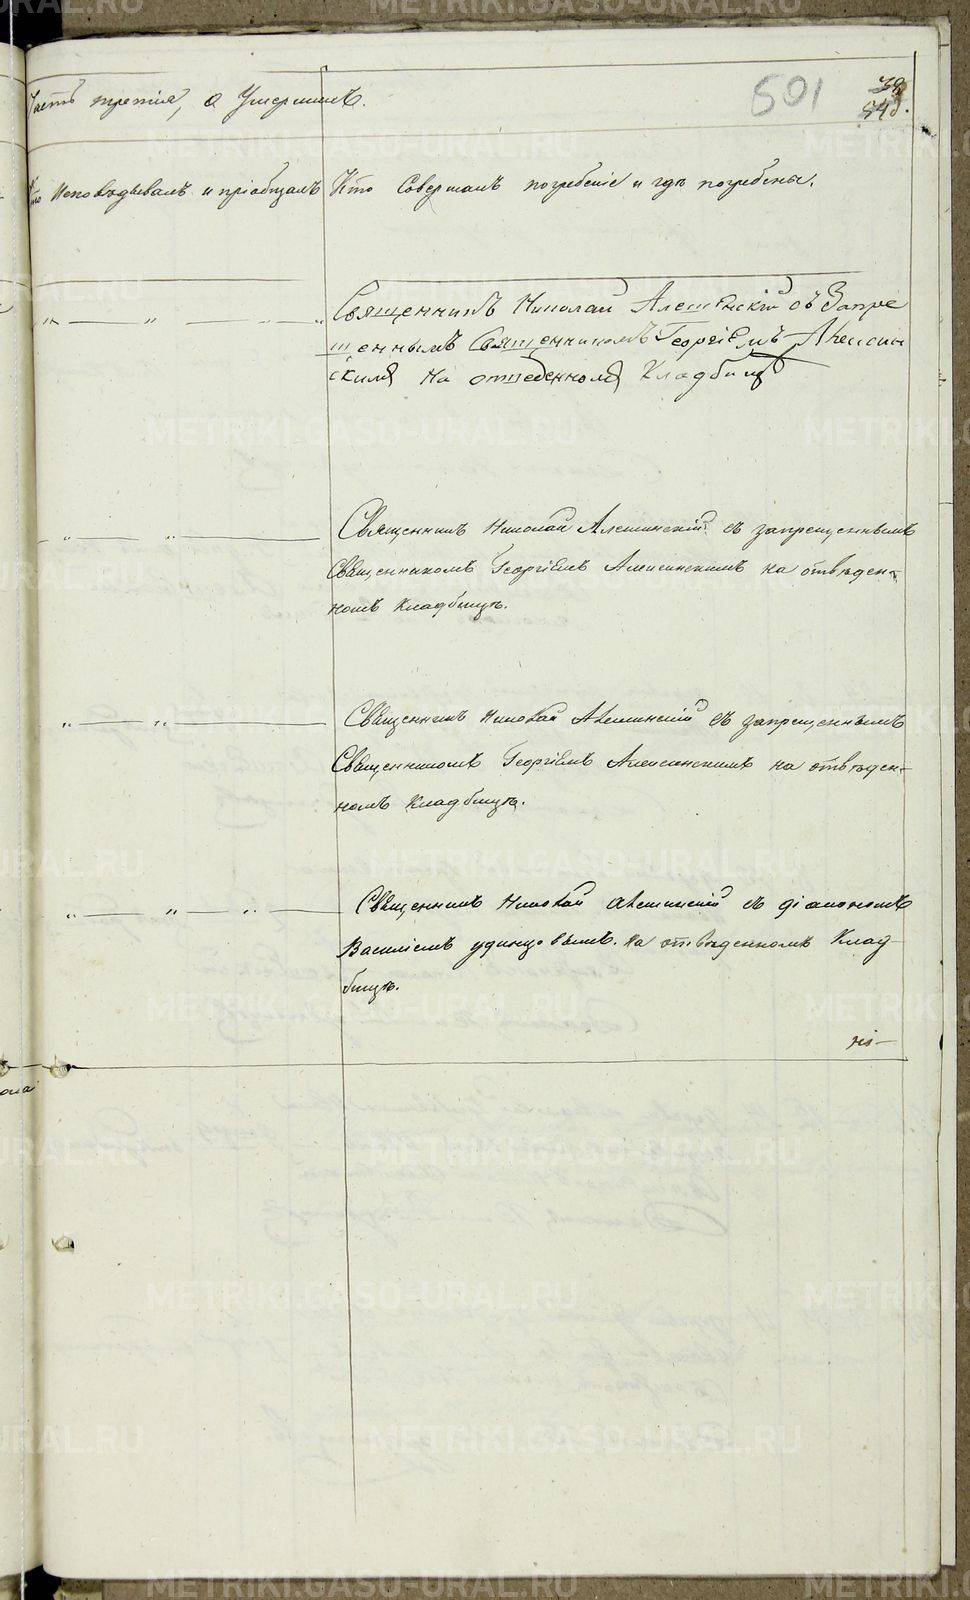 501
Часть третія, о Умершихъ.
Кто Исповѣдывалъ и пріобщалъ
Кто Совершалъ погребеніе и гдѣ погребены.
Священникъ Николай Алешинскій съ Запре
щеннымъ Священникомъ Георгіемъ Алешин
скимъ на отведенномъ Кладбищѣ
Священникъ Николай Алешинскій съ запрещеннымъ
Священникомъ Георгіемъ Алешинскимъ на отвѣден-
номъ кладбищѣ.
Священникъ Николай Алешинскій съ запрещеннымъ
Священникомъ Георгіемъ Алешинскимъ на отвѣден-
номъ кладбищѣ.
Священникъ Николай Алешинскій съ діакономъ
Василіемъ Удинцовымъ. на отвѣденномъ Клад-
бищѣ.
METRIKI.GASO-URAL.RU